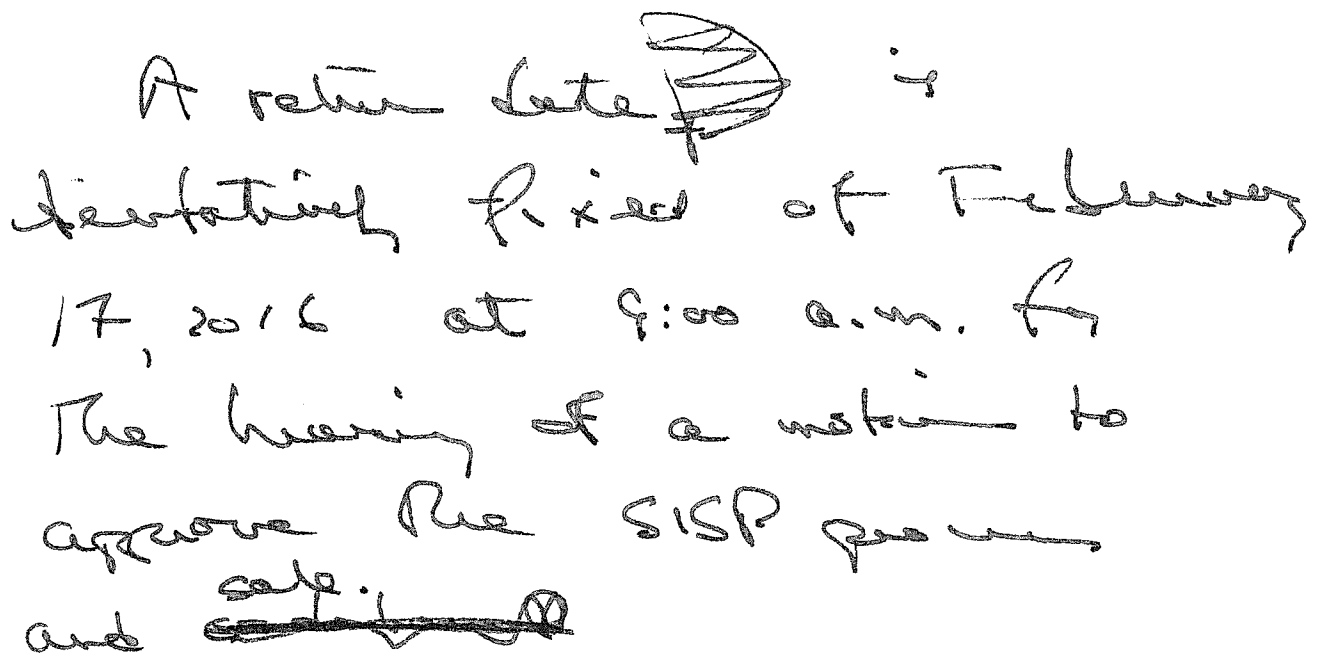 A return date is
tentatively fixed of February
17, 2016 at 9:00 a.m. for
the hearing of a motion to
approve the SISP process
and sale.